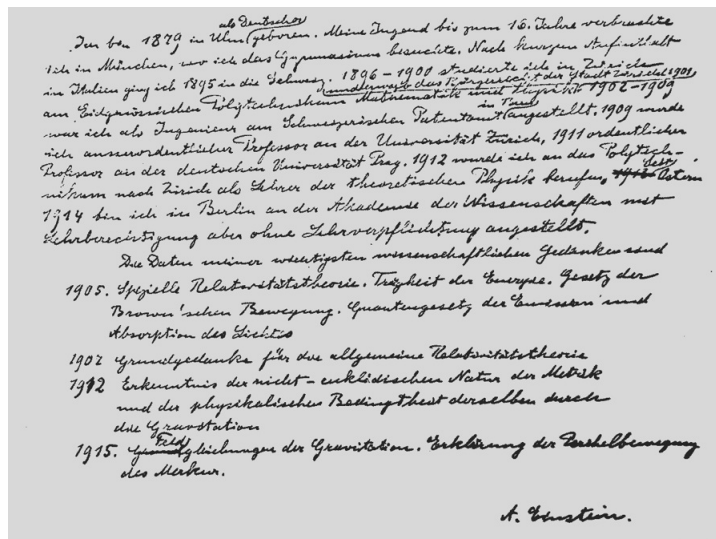 als Deutscher
Ich bin 1879 in Ulm geboren. Meine Jugend bis zum 16. Jahre verbrachte
ich in München, wo ich das Gymnasium besuchte. Nach kurzem Aufenthalt
in Italien ging ich 1895 in die Schweiz. 1896-1900 studierte ich in Zürich
und erwarb das Bürgerrecht der Stadt Zürich 1901.
am Eidgenössischen Polytechnikum Mathematik und Physik 1902-1909
in Bern
war ich als Ingenieur am Schweizerischen Patentamt angestellt. 1909 wurde
ich ausserordentlicher Professor an der Universität Zürich, 1911 ordentlicher
Professor an der deutschen Universität Prag. 1912 wurde ich an das Polytech-
nikum nach Zürich als Lehrer der theoretischen Physik berufen. Ostern
1914 bin ich in Berlin an der Akademie der Wissenschaften mit
Lehrberechtigung aber ohne Lehrverpflichtung angestellt.
Die Daten meiner wichtigsten wissenschaftlichen Gedanken sind
1905. Spezielle Relativitätstheorie. Trägheit der Energie. Gesetz der
Brown'schen Bewegung. Quantengesetz der Emission und
Absorption des Lichtes
1907 Grundgedanke für die allgemeine Relativitätstheorie
1912 Erkenntnis der nicht-euklidischen Natur der Metrik
und der physikalischen Bedingtheit derselben durch
die Gravitation
1915. Feldgleichungen der Gravitation. Erklärung der Perihelbewegung
des Merkur.
A. Einstein.